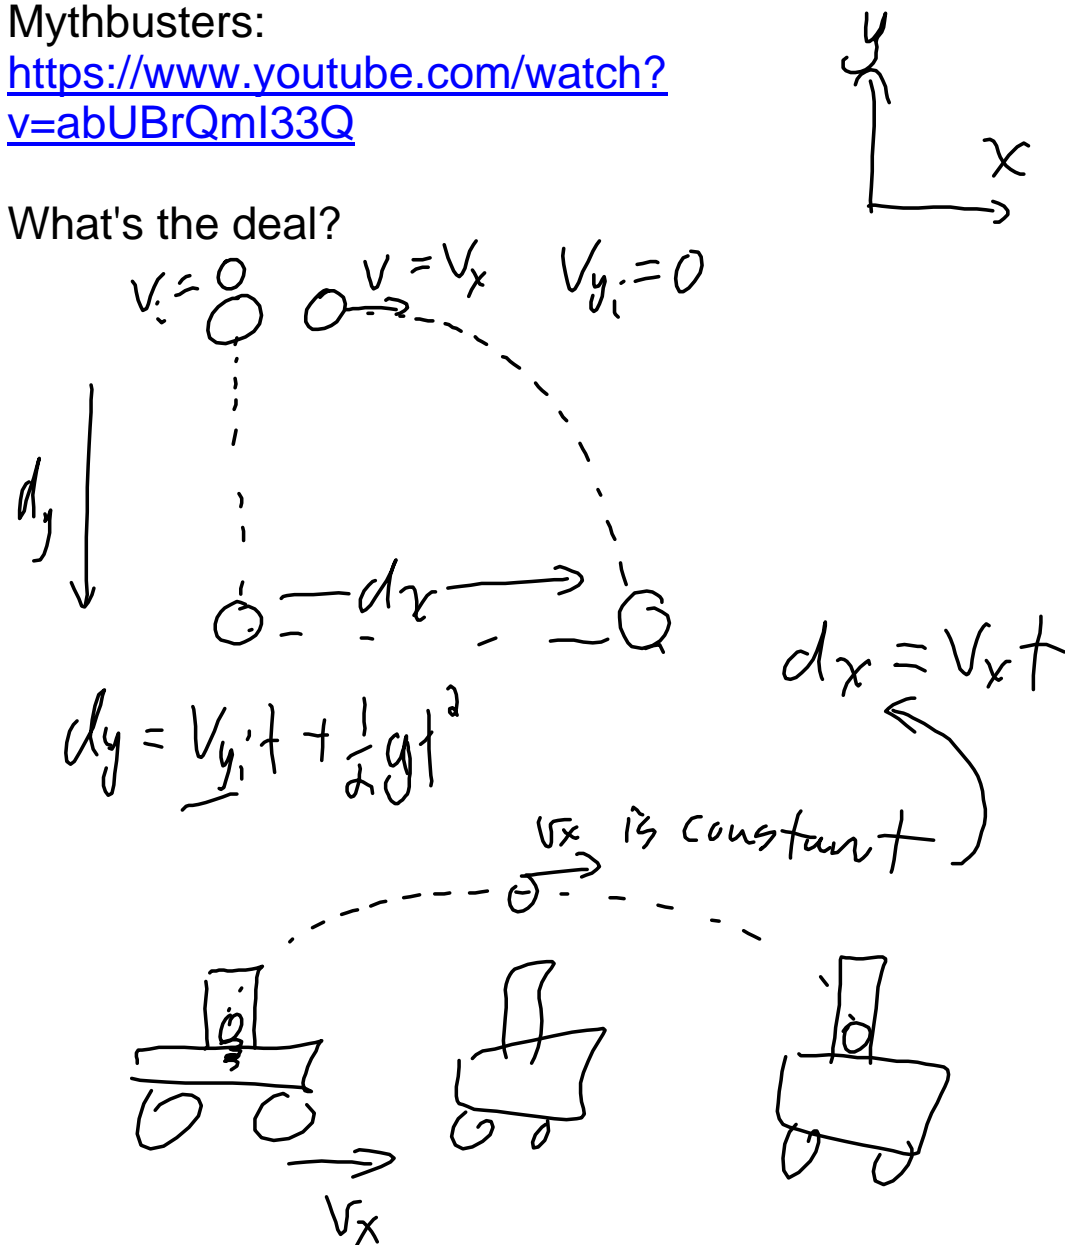 Mythbusters:
https://www.youtube.com/watch?
v=abUBrQmI33Q
y
x
What's the deal?
Vᵢ = 0
V = Vₓ
V_yᵢ = 0
d_y
dₓ
dₓ = Vₓt
d_y = V_yᵢt + ½gt²
Vₓ is constant
Vₓ